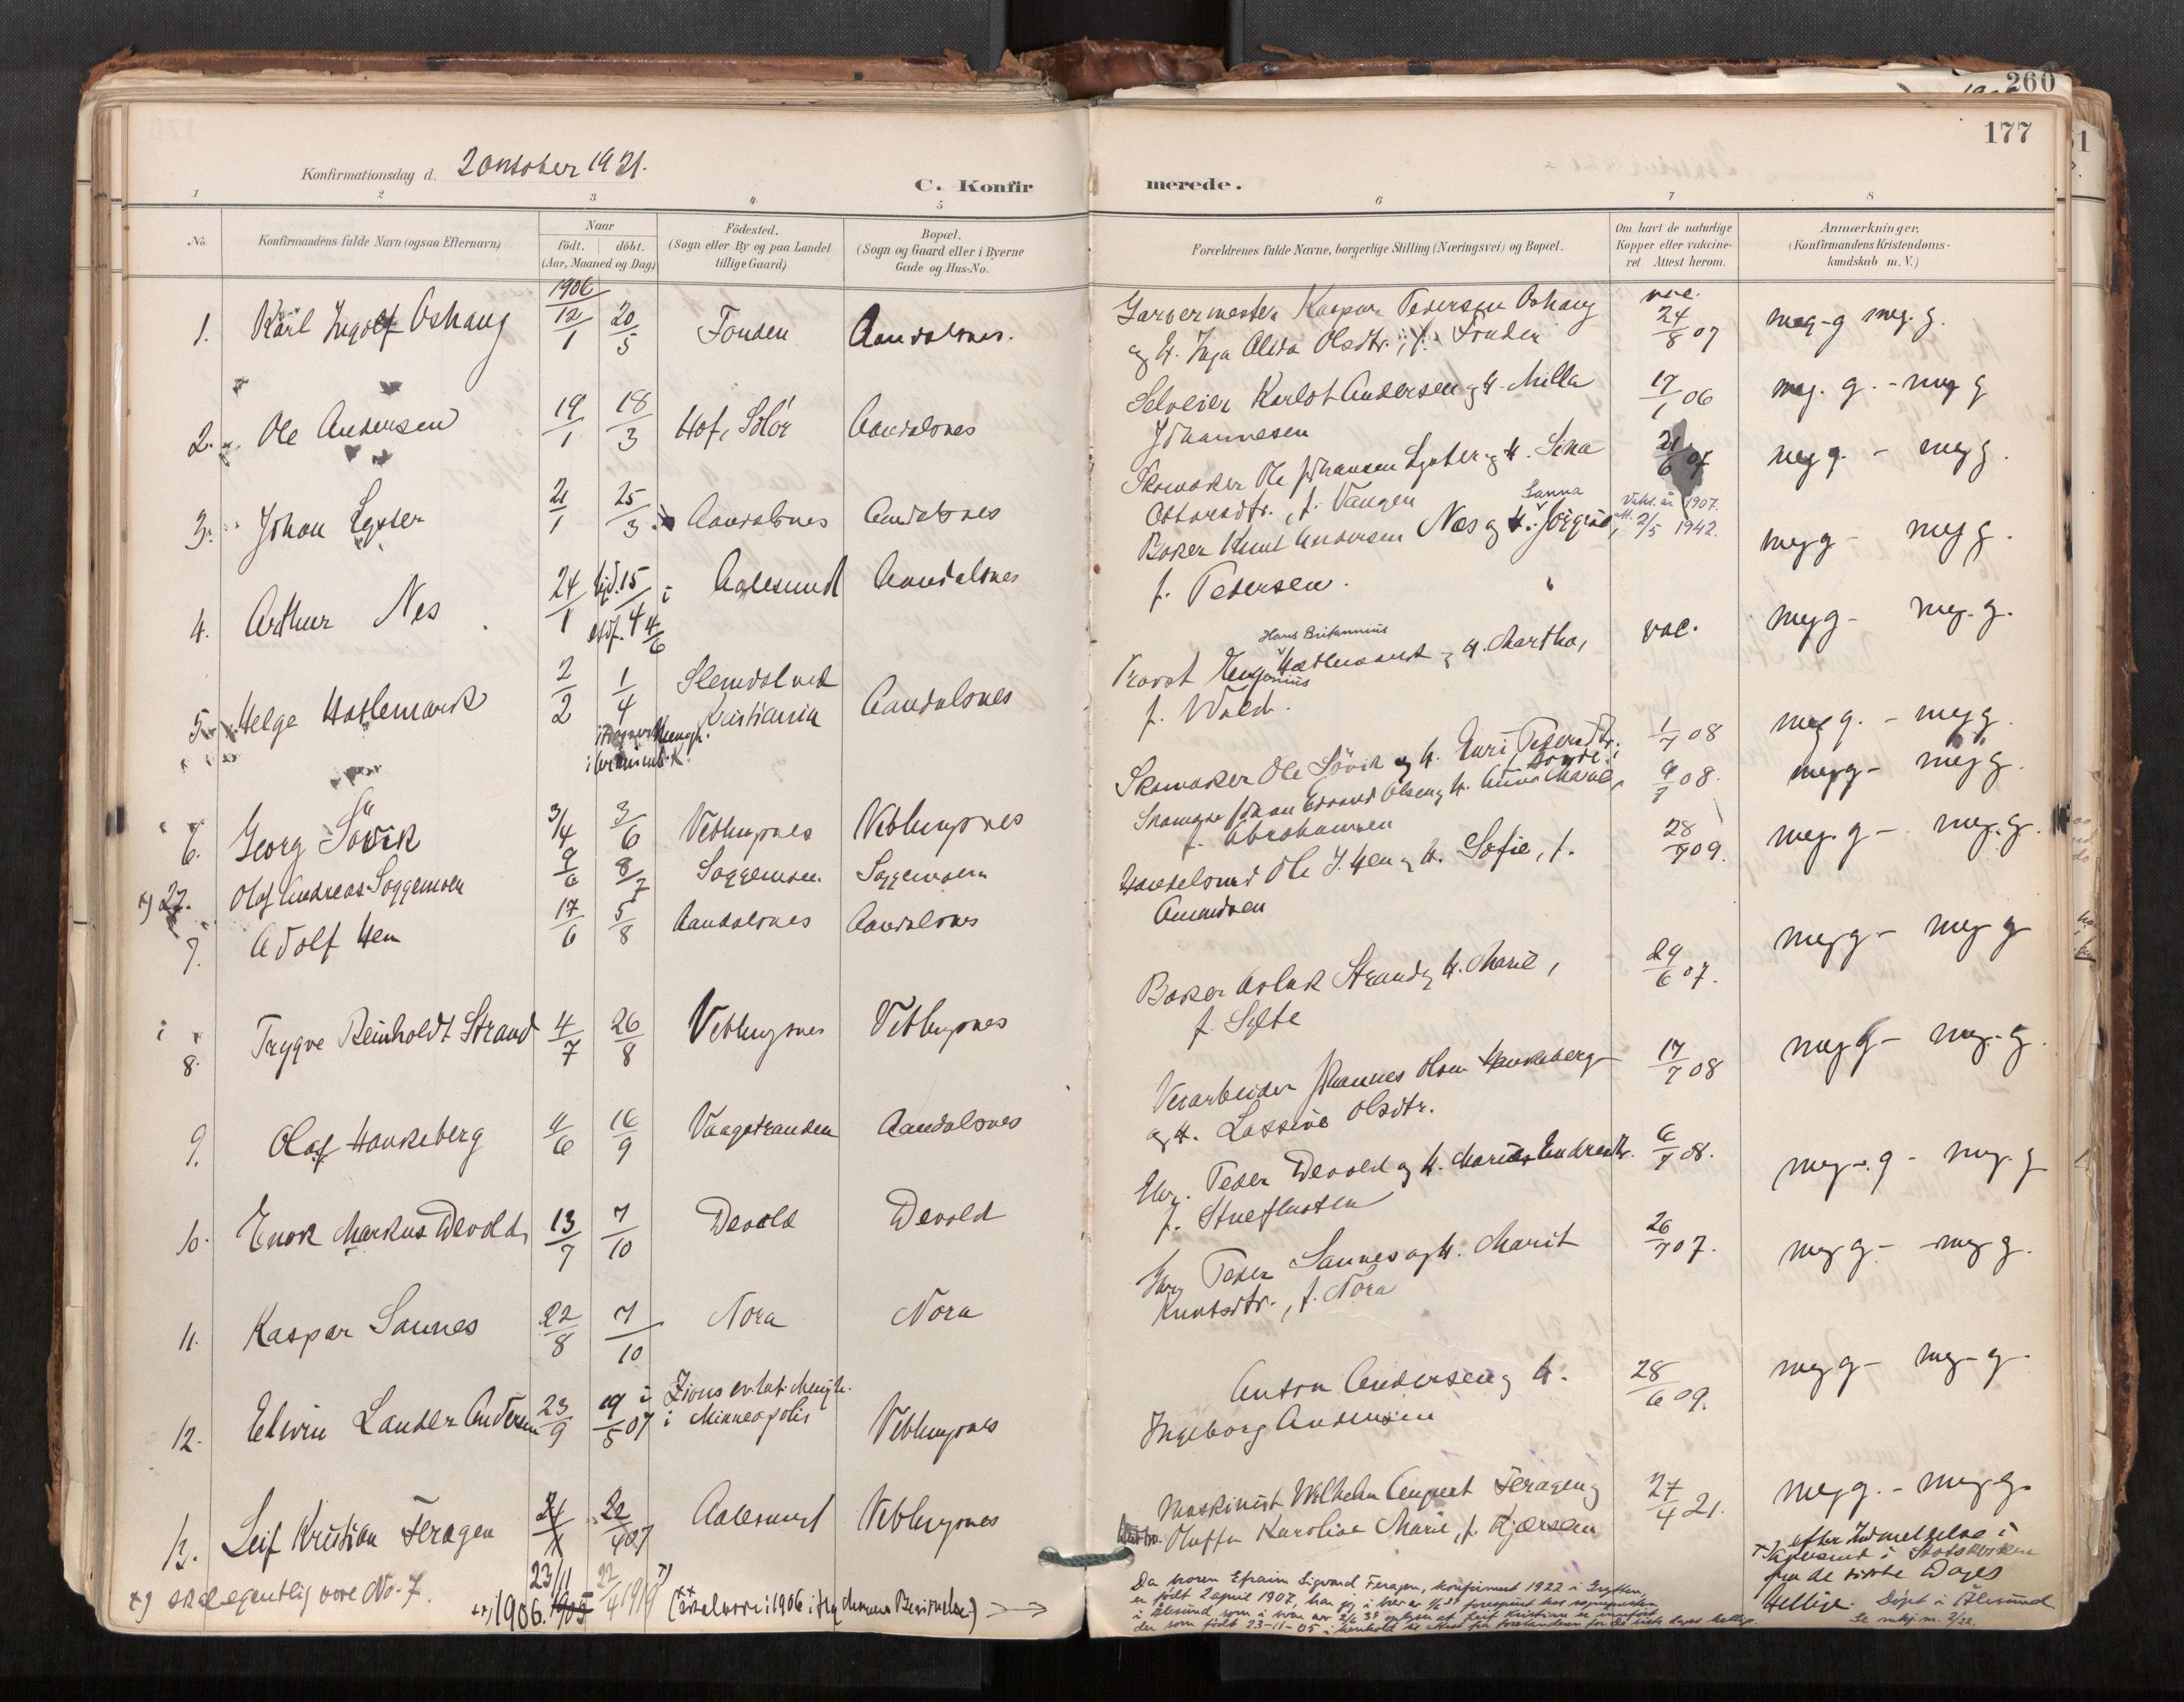 260
177
Konfirmationsdag d. 2 October 1921.
C. Konfirmerede.
1 2 3 4 5 6 7 8
No.
Konfirmandens fulde Navn (ogsaa Efternavn)
Naar
födt. döbt.
(Aar, Maaned og Dag)
Födested.
(Sogn eller By og paa Landet
tillige Gaard)
Bopæl.
(Sogn og Gaard eller i Byerne
Gade og Hus-No.
Forældrenes fulde Navne, borgerlige Stilling (Næringsvei) og Bopæl.
Om havt de naturlige
Kopper eller vakcine-
ret Attest herom.
Anmærkninger,
(Konfirmandens Kristendoms-
kundskab m. V.)
1906
1. Karl Ingolf Oshaug 12/1 20/5 Tonden Aandalsnes. Garvermester Kaspar Pedersen Oshaug vac. 24/8 07 meg. g meg. g.
og H. Inga Alida Olsdtr.
2. Ole Andersen 19/1 18/3 Hof, Solör Aandalsnes Karlot Andersen og H. Milla 17/1 06 meg. g. - meg g
Johannesen
3. Johan Lyster 21/1 25/3 Aandalsnes Aandalsnes Skomaker Ole Johansen Lyster og H. Sina 21/6 07 meg g. - meg g.
f. Vangen
4. Arthur Nes 24/1 hjd. 15/4 i Aalesund Aandalsnes Baker Knut Andersen Nes og H. Jörgine, Vaks. år 1907.
Sanna
att. 2/5 1942. meg g - meg g.
stdf. 4/6
f. Pedersen.
5. Helge Hatlemark 2/2 1/4 Slemdal ved Aandalsnes Provst Hans Britannius Hatlemark og H. Martha, vac. meg g - meg. g.
Kristiania
f. Wold.
6. Georg Søvik 3/4 3/6 Veblungsnes Veblungsnes Skomaker Ole Sövik og H. Guri Pedersdtr. 1/7 08 meg g. - meg g.
x) 27. Olaf Andreas Soggemoen 9/6 8/7 Soggemoen Soggemoen Johan Edvard Olsen og H. Anna Marie 08. meg g - meg g.
f. Abrahamsen
7. Adolf Hen 17/6 5/8 Aandalsnes Aandalsnes Handelsmd Ole J. Hen og H. Sofie, f. 28/7 09. meg. g - meg. g.
Amundsen
8. Trygve Reinholdt Strand 4/7 26/8 Veblungsnes Veblungsnes Baker Aslak Strand og H. Marie, 29/6 07. meg g - meg g
f. Sylte
9. Olaf Haukeberg 4/6 16/9 Vaagstranden Aandalsnes Veiarbeider Johannes Olsen Haukeberg 17/7 08 meg g - meg. g.
og H. Lassine Olsdtr.
10. Enok Markus Devold 13/7 7/10 Devold Devold Gbr. Peder Devold og H. Marie Endresdtr. 6/7 08. meg. g - meg. g
f. Stueflotten
11. Kaspar Sannes 22/8 7/10 Nora Nora Gbr. Peder Sannes og H. Marit 26/7 07. meg g - meg g.
Knutsdtr., f. Nora
12. Edwin Lauder Andersen 23/9 19/5 07 i Zions ev. lut. Menigh. Veblungsnes Anton Andersen og H. 28/6 09. meg g - meg - g
i Minneapolis
Ingeborg Andersen
13. Leif Kristian Feragen 22/4 07 Aalesund Veblungsnes Maskinist Wilhelm August Feragen og 27/4 21. meg g. - meg g.
Karoline Marie, f. Kjærsem
23/11 22/4 1919 x)
x) skal egentlig være No. 7.
xx) 1906. 1905 (xx skal være i 1906 ifly denne Bevirkelse)
x) efter Indmeldelse i
Aalesund i Statskirken
fra de sidste Dages
Hellige. Döpt i Ålesund
Da broren Efraim Sigvard Feragen, konfirmert 1922 i Grytten,
er født 2 april 1907,
i Ålesund, som i svar av 2/6 39 oplyser at Leif Kristian er innført
der som født 23-11-05 i henhold til attest fra forstanderen for De siste dages hellige.